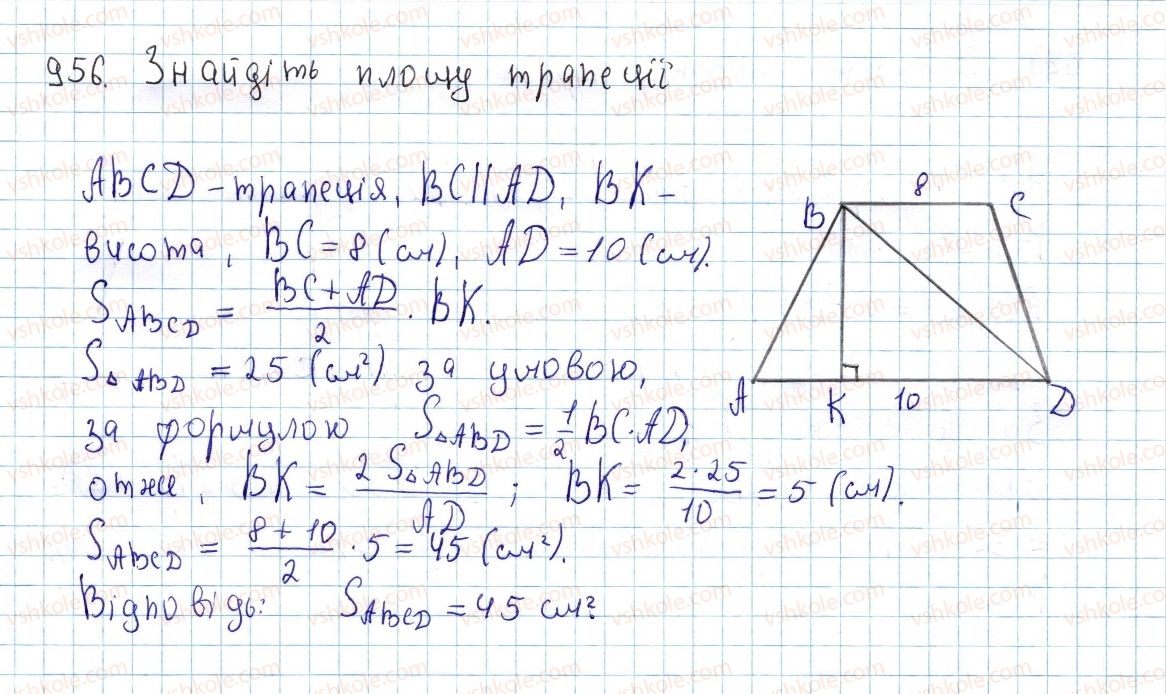 956. Знайдіть площу трапеції
ABCD – трапеція, BC||AD, BK –
висота, BC = 8 (см), AD = 10 (см).
S_ABCD = (BC + AD)/2 · BK.
S_△ABD = 25 (см²) за умовою,
за формулою S_△ABD = 1/2 BC·AD,
отже, BK = 2 S_△ABD/AD ; BK = 2·25/10 = 5 (см).
S_ABCD = (8 + 10)/2 · 5 = 45 (см²).
Відповідь: S_ABCD = 45 см².
8
B
C
A
K
10
D
vshkole.com